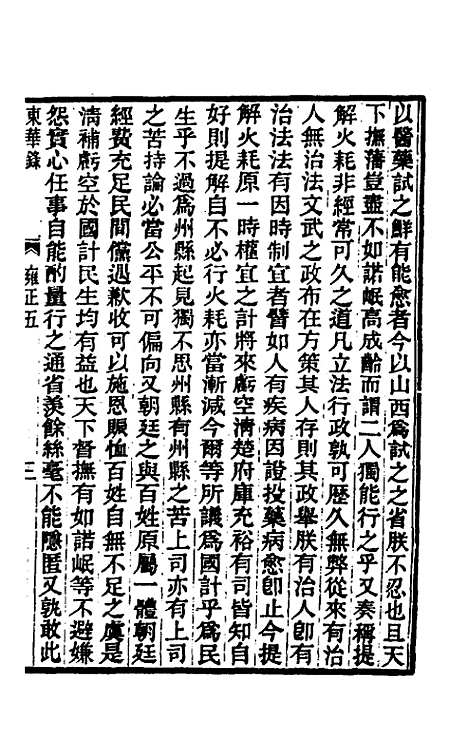 以醫藥試之鮮有能愈者今以山西爲試之之省朕不忍也且天
下撫藩豈盡不如諾岷高成齡而謂二人獨能行之乎又奏稱提
解火耗非經常可久之道凡立法行政孰可歷久無弊從來有治
人無治法文武之政布在方策其人存則其政舉朕有治人卽有
治法法有因時制宜者譬如人有疾病因證投藥病愈卽止今提
解火耗原一時權宜之計將來虧空清楚府庫充裕有司皆知自
好則提解自不必行火耗亦當漸減今爾等所議爲國計乎爲民
生乎不過爲州縣起見獨不思州縣有州縣之苦上司亦有上司
之苦持論必當公平不可偏向又朝廷之與百姓原屬一體朝廷
經費充足民間儻遇歉收可以施恩賑恤百姓自無不足之虞是
清補虧空於國計民生均有益也天下督撫有如諾岷等不避嫌
怨實心任事自能酌量行之通省羨餘絲毫不能隱匿又孰敢此
東華錄 雍正五 三